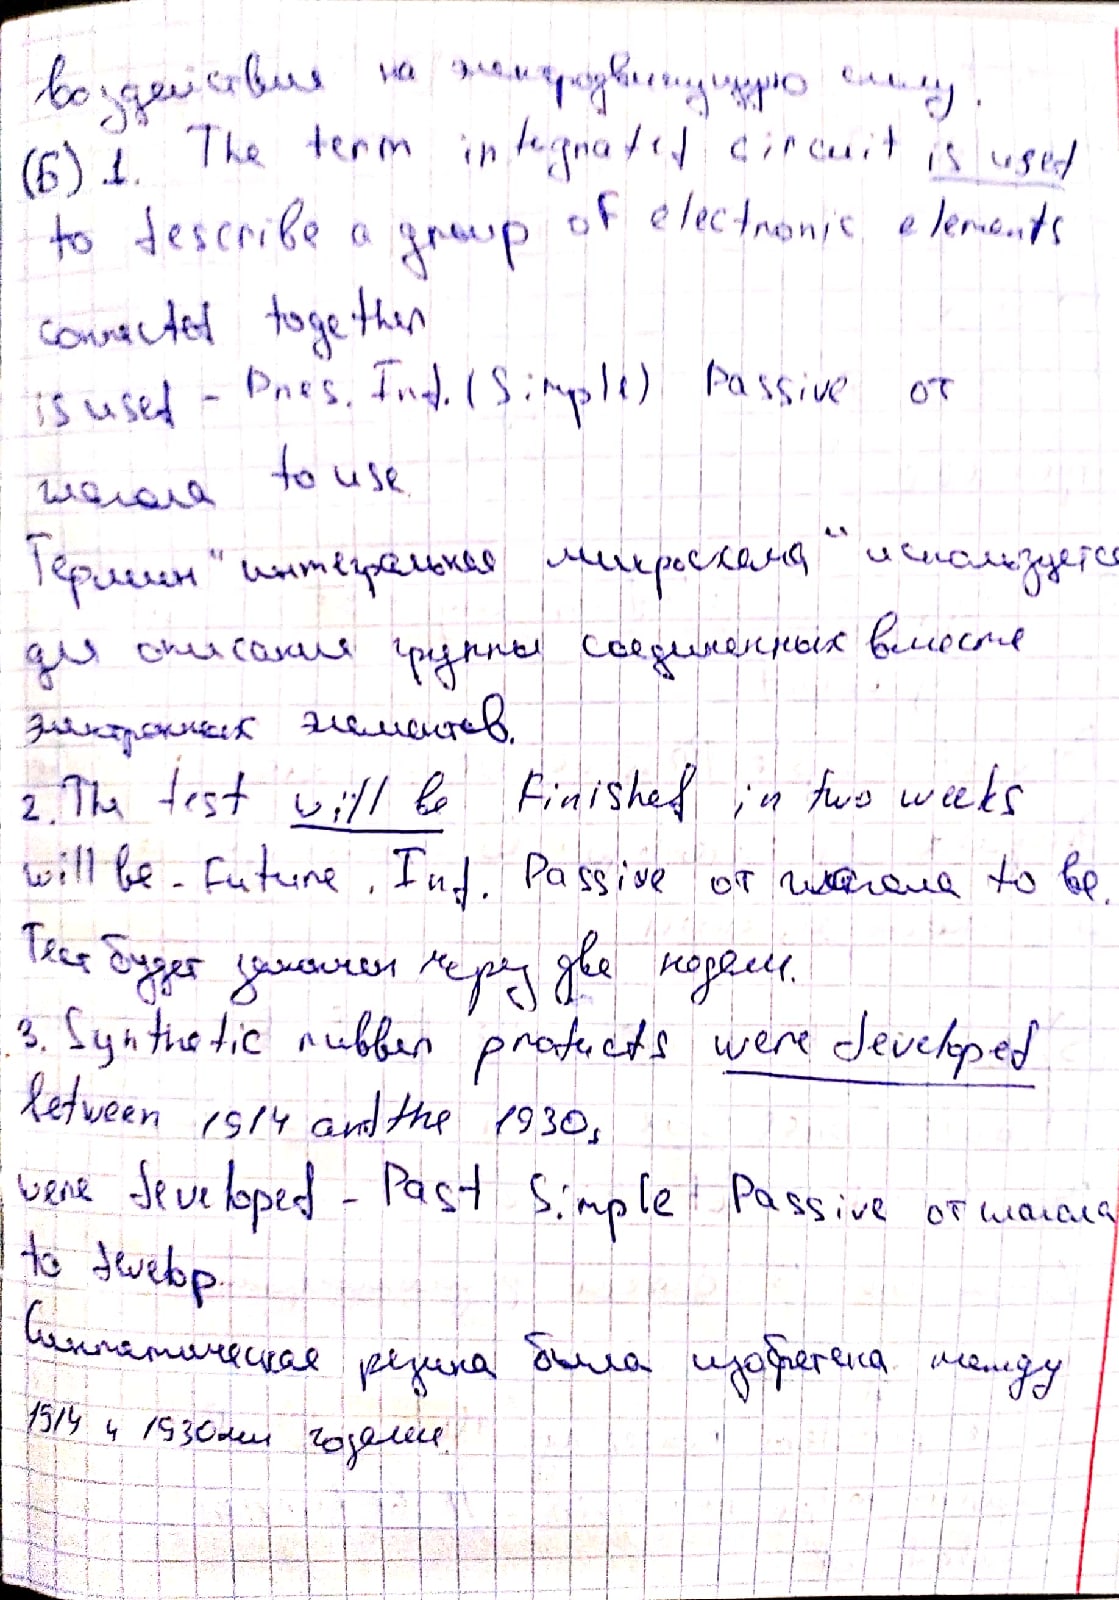 воздействия на электродвижущую силу.
(Б) 1. The term integrated circuit is used
to describe a group of electronic elements
connected together
is used - Pres. Inf. (Simple) Passive от
глагола to use
Термин "интегральная микросхема" используется
для описания группы соединенных вместе
электронных элементов.
2. The test will be finished in two weeks
will be - Future. Inf. Passive от глагола to be.
Тест будет закончен через две недели.
3. Synthetic rubber products were developed
between 1914 and the 1930s
were developed - Past Simple Passive от глагола
to develop.
Синтетическая резина была изобретена между
1914 и 1930ми годами.